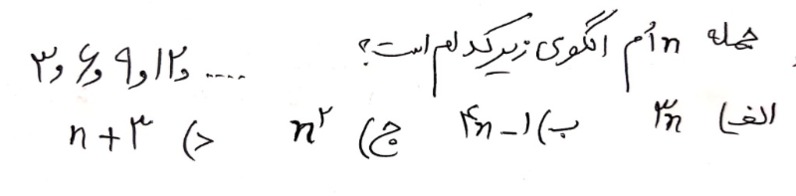 جمله nاُم الگوی زیر کدام است؟ ۳ و ۶ و ۹ و ۱۲ و ....
الف) ۳n ب) ۴n-۱ ج) n۲ د) n+۳